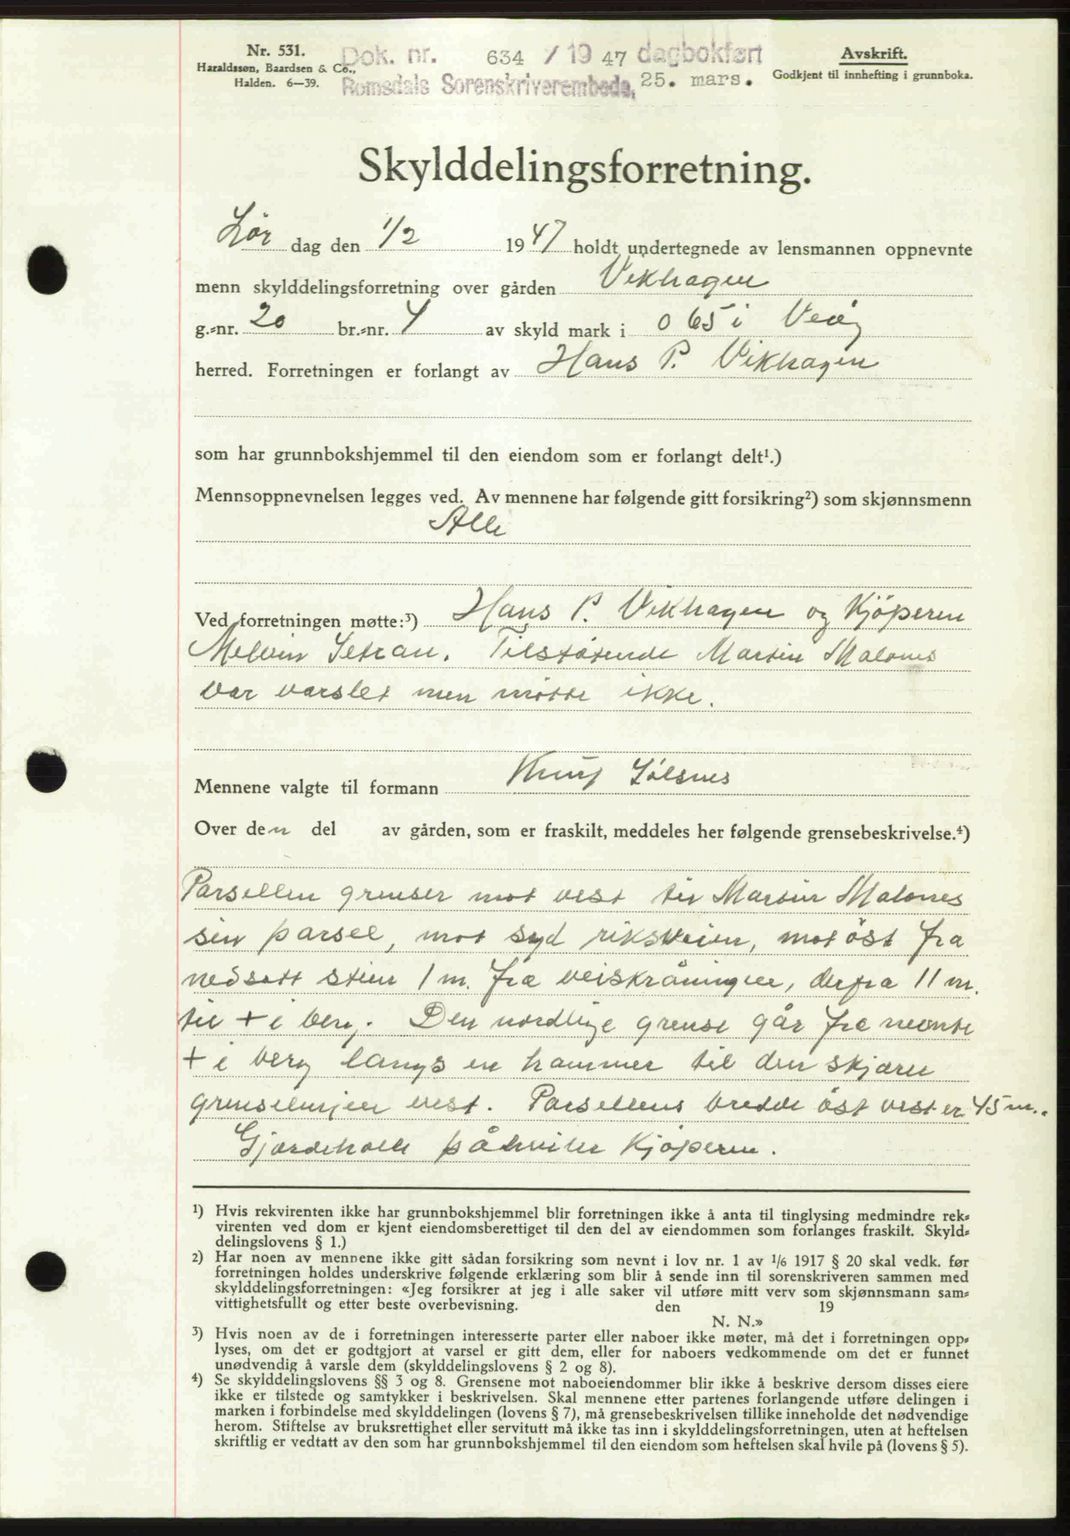 Nr. 531.
Haraldssøn, Baardsen & Co.,
Halden. 6—39.
Dok. nr. 634 / 1947 dagbokført
Romsdals Sorenskriverembede, 25. mars.
Avskrift.
Godkjent til innhefting i grunnboka.
Skylddelingsforretning.
Lør dag den 1/2 1947 holdt undertegnede av lensmannen oppnevnte
menn skylddelingsforretning over gården Vikhagen
g.-nr. 20 br.-nr. 4 av skyld mark i 0 65 i Veøy
herred. Forretningen er forlangt av Hans P. Vikhagen
som har grunnbokshjemmel til den eiendom som er forlangt delt¹.)
Mennsoppnevnelsen legges ved. Av mennene har følgende gitt forsikring²) som skjønnsmenn
Alle
Ved forretningen møtte:³) Hans P. Vikhagen og Kjöperen
Melvin Setran. Tilstøtende Martin Malones
var varslet men møtte ikke.
Mennene valgte til formann Knut Sølsnes
Over den del av gården, som er fraskilt, meddeles her følgende grensebeskrivelse.⁴)
Parsellen grenser mot vest til Martin Malones
sin parsel, mot syd riksveien, mot öst fra
nedsatt stein 1 m. fra veiskråningen, derfra 11 m.
til + i berg. Den nordlige grense går fra nevnte
+ i berg langs en hammer til den skjærer
grenselinjen vest. Parsellens bredde öst vest er 45 m.
Gjærdehold påhviler Kjöperen.
¹) Hvis rekvirenten ikke har grunnbokshjemmel blir forretningen ikke å anta til tinglysing medmindre rek-
virenten ved dom er kjent eiendomsberettiget til den del av eiendommen som forlanges fraskilt. Skyld-
delingslovens § 1.)
²) Har noen av mennene ikke gitt sådan forsikring som nevnt i lov nr. 1 av 1/6 1917 § 20 skal vedk. før
forretningen holdes underskrive følgende erklæring som blir å sende inn til sorenskriveren sammen med
skylddelingsforretningen: «Jeg forsikrer at jeg i alle saker vil utføre mitt verv som skjønnsmann sam-
vittighetsfullt og etter beste overbevisning. den 19
N. N.»
³) Hvis noen av de i forretningen interesserte parter eller naboer ikke møter, må det i forretningen opp-
lyses, om det er godtgjort at varsel er gitt dem, eller for naboers vedkommende om det er funnet
unødvendig å varsle dem (skylddelingslovens § 2 og 8).
⁴) Se skylddelingslovens §§ 3 og 8. Grensene mot naboeiendommer blir ikke å beskrive dersom disses eiere
ikke er tilstede og samtykker i beskrivelsen. Skal mennene etter partenes forlangende utføre delingen i
marken i forbindelse med skylddelingen (lovens § 7), må grensebeskrivelsen tillike inneholde det nødvendige
herom. Stiftelse av bruksrettighet eller servitutt må ikke tas inn i skylddelingsforretningen, uten at heftelsen
skriftlig er vedtatt av den som har grunnbokshjemmel til den eiendom som heftelsen skal hvile på (lovens § 5).